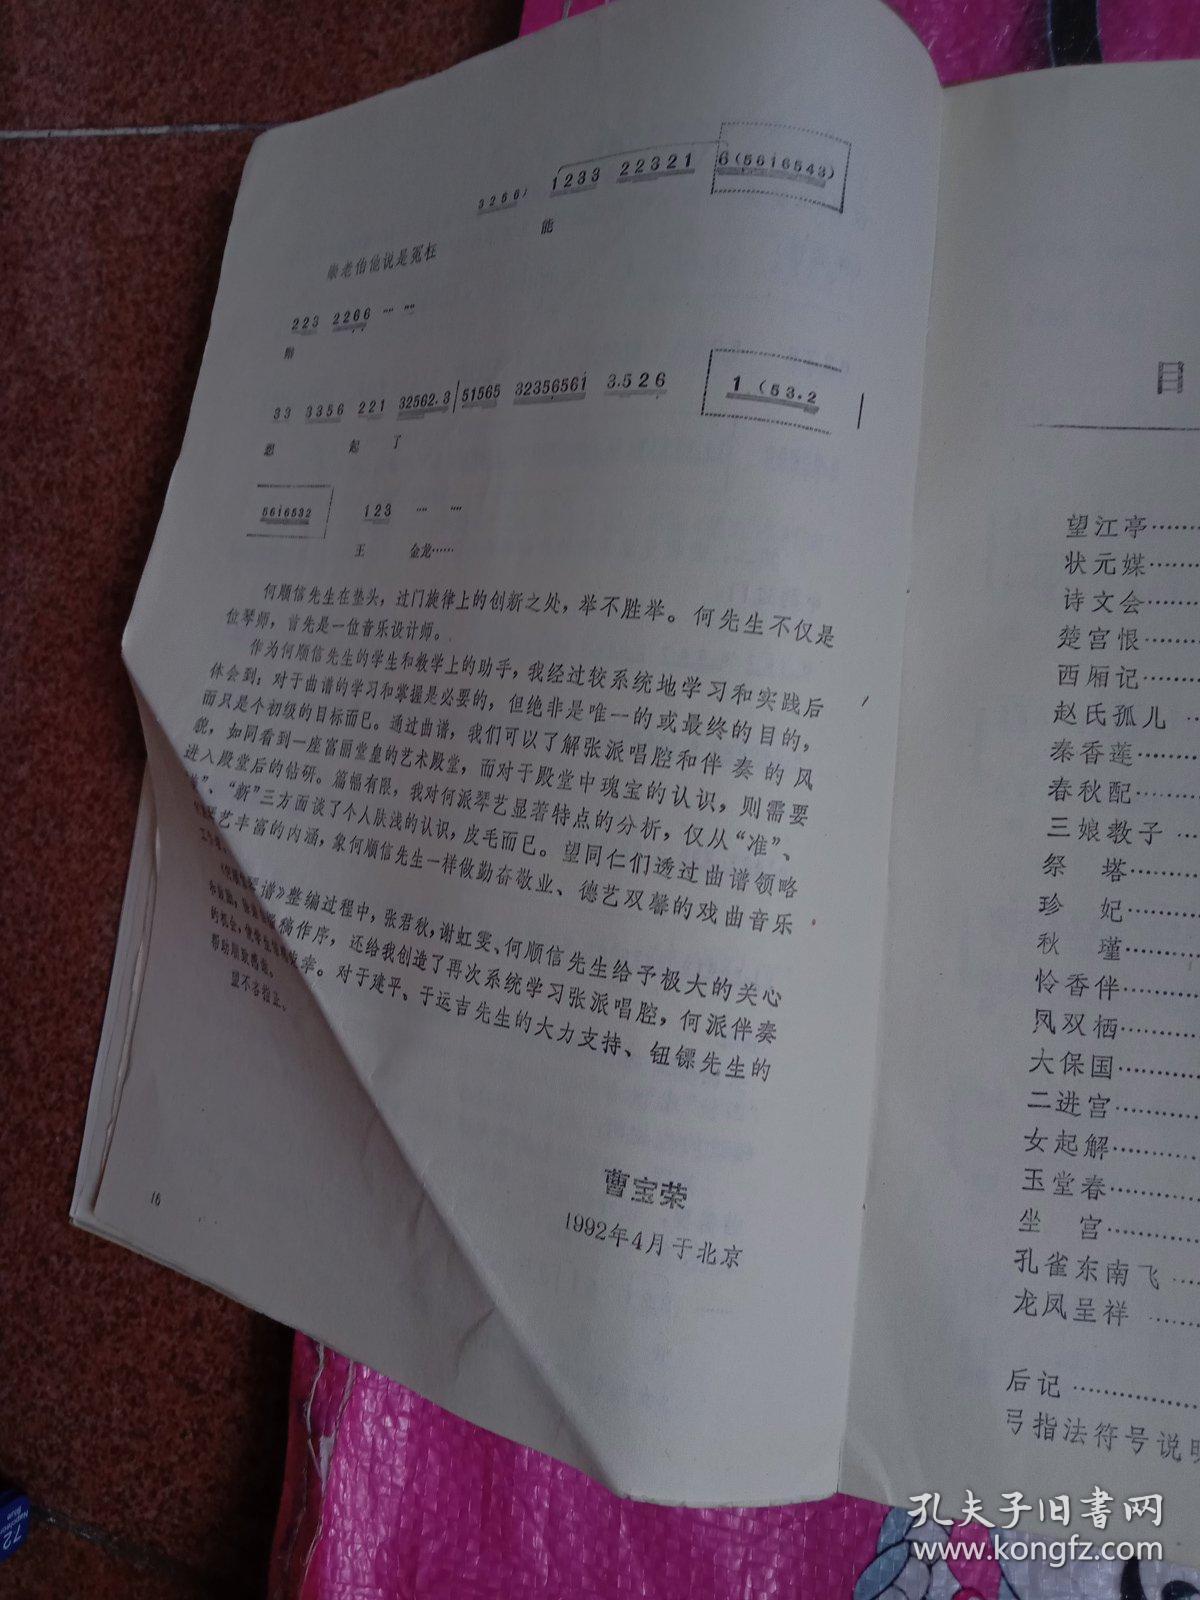 3256)  1233  22321  6(5616543)
能
崇老伯他说是冤枉
223  2266
33  3356  221  32562.3  51565  32356561  3.526  1 (53.2
想 起 了
5616532  123
王 金龙……
何顺信先生在垫头，过门旋律上的创新之处，举不胜举。何先生不仅是
位琴师，首先是一位音乐设计师。
作为何顺信先生的学生和教学上的助手，我经过较系统地学习和实践后
体会到：对于曲谱的学习和掌握是必要的，但绝非是唯一的或最终的目的，
而只是个初级的目标而已。通过曲谱，我们可以了解张派唱腔和伴奏的风
貌，如同看到一座富丽堂皇的艺术殿堂，而对于殿堂中瑰宝的认识，则需要
进入殿堂后的钻研。篇幅有限，我对何派琴艺显著特点的分析，仅从“准”、
”、“新”三方面谈了个人肤浅的认识，皮毛而已。望同仁们透过曲谱领略
琴艺丰富的内涵，象何顺信先生一样做勤奋敬业、德艺双馨的戏曲音乐
琴谱》整编过程中，张君秋，谢虹雯、何顺信先生给予极大的关心
稿作序，还给我创造了再次系统学习张派唱腔，何派伴奏
的机会，幸。对于建平、于运吉先生的大力支持、钮镖先生的
帮助顺致感谢。
望不吝指正。
曹宝荣
1992年4月于北京
16
目
望江亭……
状元媒……
诗文会……
楚宫恨……
西厢记……
赵氏孤儿……
秦香莲……
春秋配……
三娘教子……
祭 塔……
珍 妃……
秋 瑾……
怜香伴……
凤双栖……
大保国……
二进宫……
女起解……
玉堂春……
坐 宫……
孔雀东南飞……
龙凤呈祥……
后记……
弓指法符号说明
孔夫子旧书网
www.kongfz.com